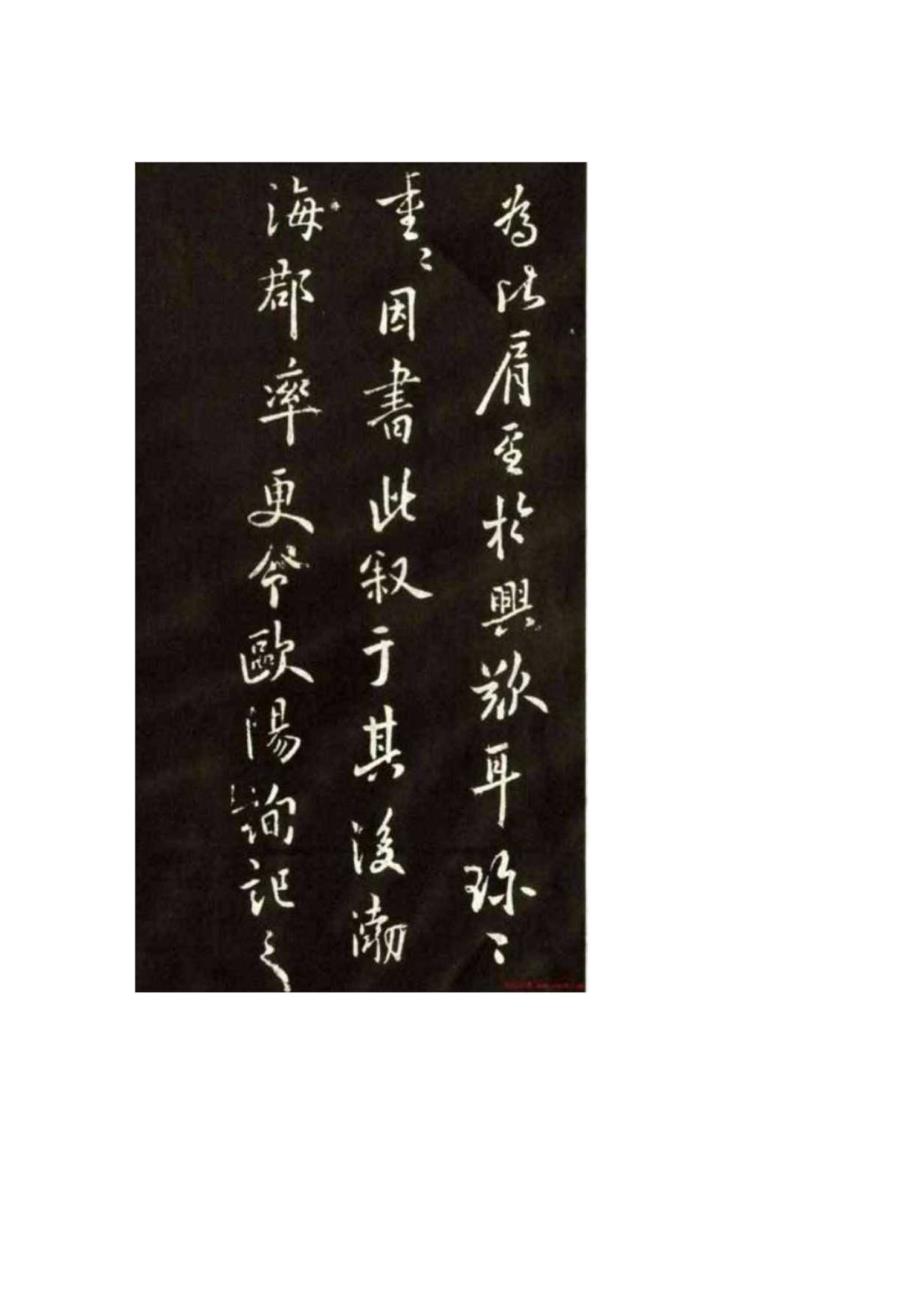 為比肩至於興歎耳珎〻
重〻因書此叙于其後渤
海郡率更令歐陽詢記之